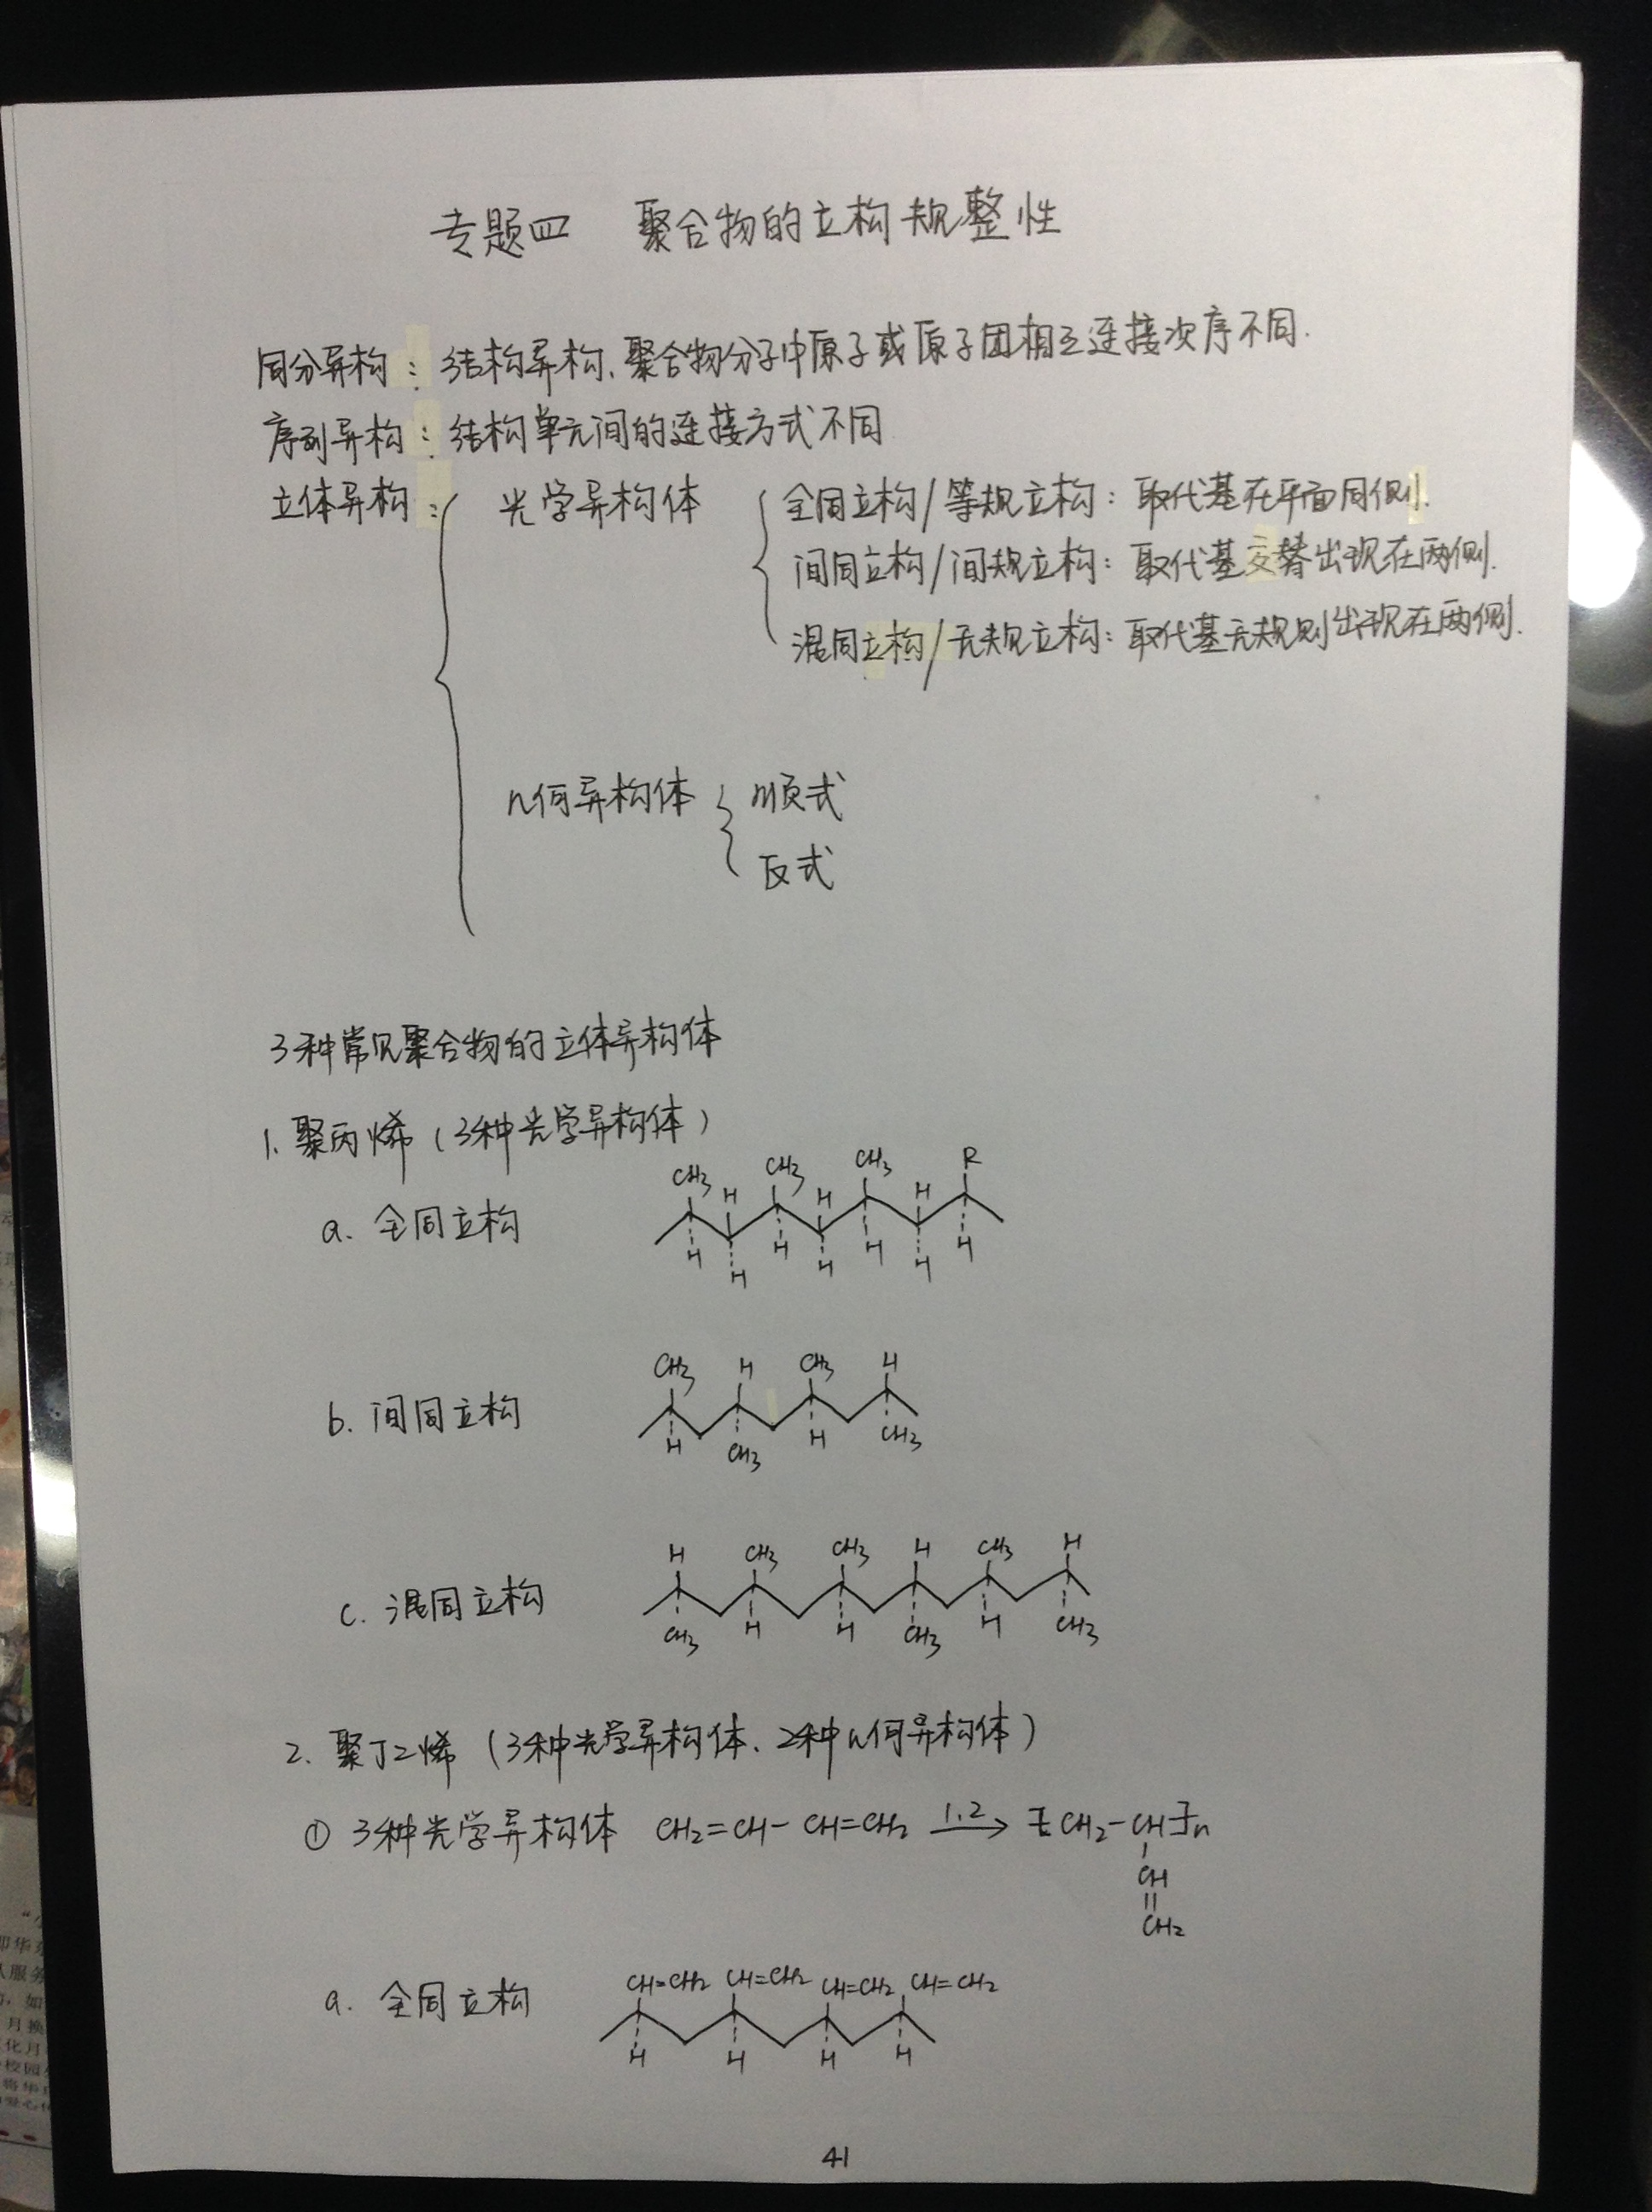 专题四 聚合物的立构规整性
同分异构：结构异构、聚合物分子中原子或原子团相互连接次序不同.
序列异构：结构单元间的连接方式不同
立体异构： 光学异构体 全同立构/等规立构：取代基在平面同侧.
间同立构/间规立构：取代基交替出现在两侧.
混同立构/无规立构：取代基无规则出现在两侧.
几何异构体 顺式
反式
3种常见聚合物的立体异构体
1. 聚丙烯（3种光学异构体）
CH3 H CH3 H CH3 H R
a. 全同立构
H H H H H H H
CH3 H CH3 H
b. 间同立构
H CH3 H CH3
H CH3 CH3 H CH3 H
c. 混同立构
CH3 H H CH3 H CH3
2. 聚丁二烯（3种光学异构体、2种几何异构体）
① 3种光学异构体 CH2=CH-CH=CH2 1.2→ [CH2-CH]n
CH
||
CH2
CH=CH2 CH=CH2 CH=CH2 CH=CH2
a. 全同立构
H H H H
41